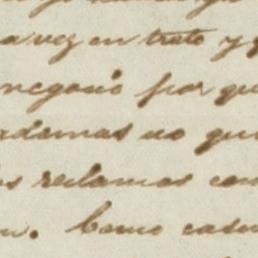 a vez en trato y
negocio por qu
ademas no qui
s reclamos con
n. Como casu